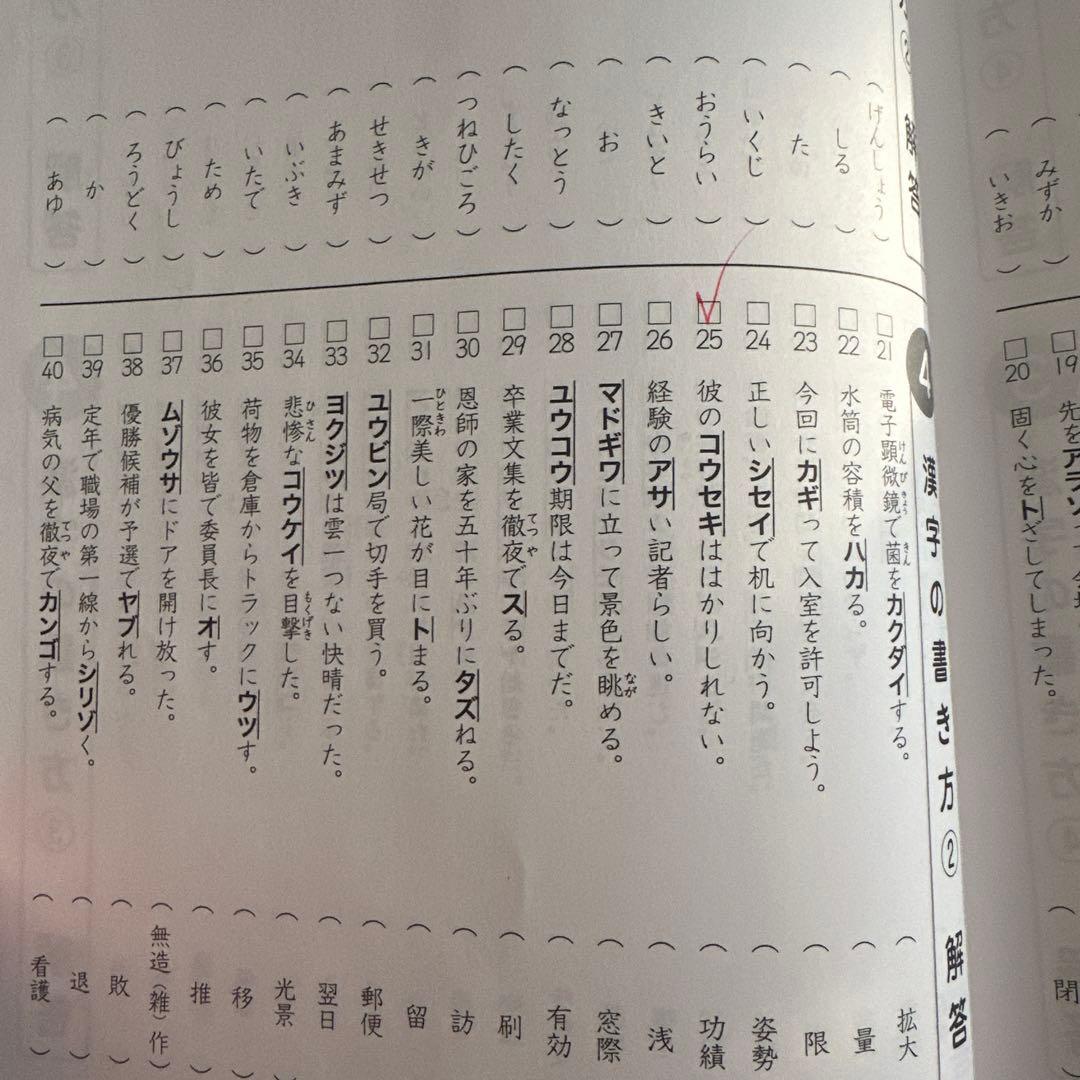 解答
(けんじょう)
(しる)
(た)
(いくじ)
(おうらい)
(きいと)
(お)
(なっとう)
(したく)
(つねひごろ)
(きが)
(せきせつ)
(あまみず)
(いぶき)
(いたで)
(ため)
(びょうし)
(ろうどく)
(か)
(あゆ)
(みずか)
(いきお)
19 先を
20 固く心をトざしてしまった。
閉
4 漢字の書き方② 解答
21 電子顕微鏡で菌をカクダイする。
けんびきょう
きん
(拡大
22 水筒の容積をハカる。
(量
23 今回にカギって入室を許可しよう。
(限
24 正しいシセイで机に向かう。
(姿勢
25 彼のコウセキははかりしれない。
(功績
26 経験のアサい記者らしい。
(浅
27 マドギワに立って景色を眺める。
なが
(窓際
28 ユウコウ期限は今日までだ。
(有効
29 卒業文集を徹夜でスる。
てつや
(刷
30 恩師の家を五十年ぶりにタズねる。
(訪
31 一際美しい花が目にトまる。
ひときわ
(留
32 ユウビン局で切手を買う。
(郵便
33 ヨクジツは雲一つない快晴だった。
(翌日
34 悲惨なコウケイを目撃した。
ひさん
もくげき
(光景)
35 荷物を倉庫からトラックにウツす。
(移)
36 彼女を皆で委員長にオす。
(推)
37 ムゾウサにドアを開け放った。
(無造(雑)作)
38 優勝候補が予選でヤブれる。
(敗)
39 定年で職場の第一線からシリゾく。
(退)
40 病気の父を徹夜でカンゴする。
てつや
(看護)